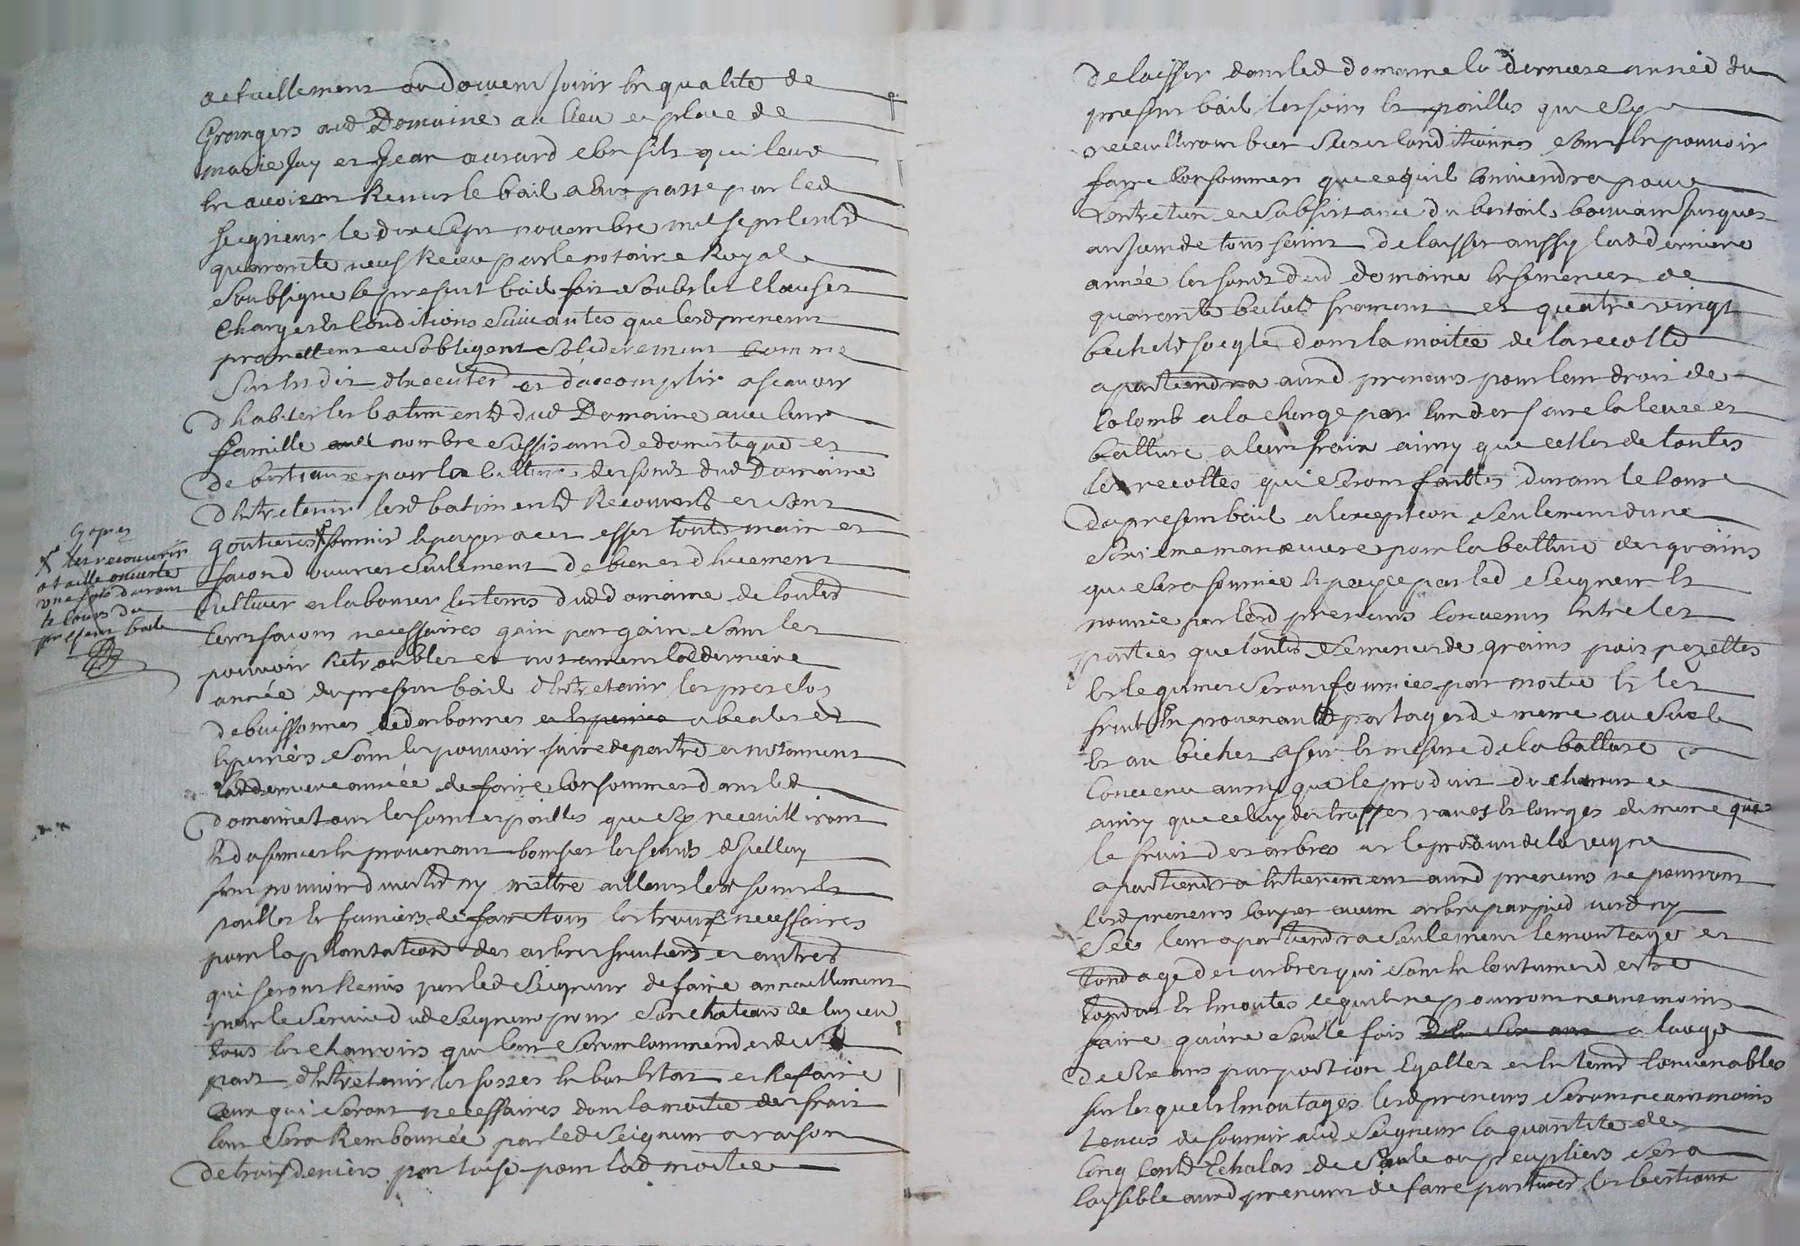 actuellement ou doivent jouir en qualité de
Grangers aud Domaine au lieu et place de
marie Juy et Jean aurard son fils qui leurs
en avoient Remis le bail a eux passé par led
seigneur le dix sept novembre mil sept cent
quarante neuf Receu par le notaire Royal
soubsigné le present bail fait soubs les clauses
charges et conditions suivantes que lesd preneurs
promettent et sobligent solidairement comme
sus est dit dexecuter et daccomplir a scavoir
dhabiter les batiments dud Domaine avec leur
famille nombre suffisant de domestiques et
de bestiaux pour la culture des fonds dud Domaine
dentretenir lesd batiments Recouverts et sans
goutieres fournir et payer a cet effet toute main et
facond ouvrier seulement de bien et duement
cultiver et labourer les terres dud domaine de toutes
leurs facons necessaires gain par gain sans les
pouvoir retroubler et notament lad derniere
année du present bail dentretenir les prés clos
debuissonnés
sans les pouvoir faire depaitre et notament
lad derniere année de faire consommer dans led
domaine tous les foins et pailles quils receuilliront
et du fumier en provenant bonifier les fonds dycelluy
sans pouvoir divertir ny mettre ailleurs lesd foins et
pailles et fumiers de faire tous les trous necessaires
pour la plantation des arbres fruitiers et autres
qui seront Remis par led seigneur de faire annuellement
pour le service dud seigneur pour son chateau de
tous les charrois qui leur seront commendés de sa
part dentretenir les fossés en bon etat et Refaire
ceux qui seront necessaires dont la moitié des frais
leur sera Remboursée par led seigneur a raison
de trois deniers par toise pour lad moitié
et de les recouvrir
a taille ouverte
une fois durant
le cours du
present bail
de laisser dans led domaine la derniere année du
present bail les foins et pailles quils y
receuilliront bien seiches et conditionnés sans en pouvoir
faire consommer que ce quil conviendra pour
lentretien et subsistance du bestail bouvain jusques
au jour de tous saint de laisser aussy lad derniere
année les fonds dud domaine ensemencés de
quarante bichets froment et quatre vingt
bichets soegle dont la moitiée de la recolte
apartiendra aud preneurs pour leur droit de
colomb a la charge par eux den faire la levée et
batture a leurs frais ainsy que celles de toutes
les recoltes qui seront faittes durant le cours
du present bail a lexception seulement dune
seulle manoeuvre pour la batture des grains
que sera fournie et payée par led seigneur et
nourrie par lesd preneurs convenu entre les
parties que toutes semences de grains pois pezettes
et legumes seront fournies par moitié et les
fruits en provenant partagés de meme au
et au bichet a fur et mesure de la batture
convenu aussy que le produit du chanvre
ainsy que celuy des truffes raves et courges de meme que
le fruit des arbres et le produit de la
apartiendra entierement aud preneurs ne pourront
lesd preneurs couper aucun arbre par pied verd ny
sec leur apartiendra seulement lemontage et
tondage des arbres qui sont en coutume detre
tondus et emontés ce quils ne pourront neanmoins
faire qu'une seule fois a lauge
de six ans par portion egalles et en temps convenables
sur lesquels emontages lesd preneurs seront neanmoins
tenus de fournir aud seigneur la quantité de
cinq cent Echalas de saule ou peupliers sera
loisible aud preneurs de faire paturer les bestiaux